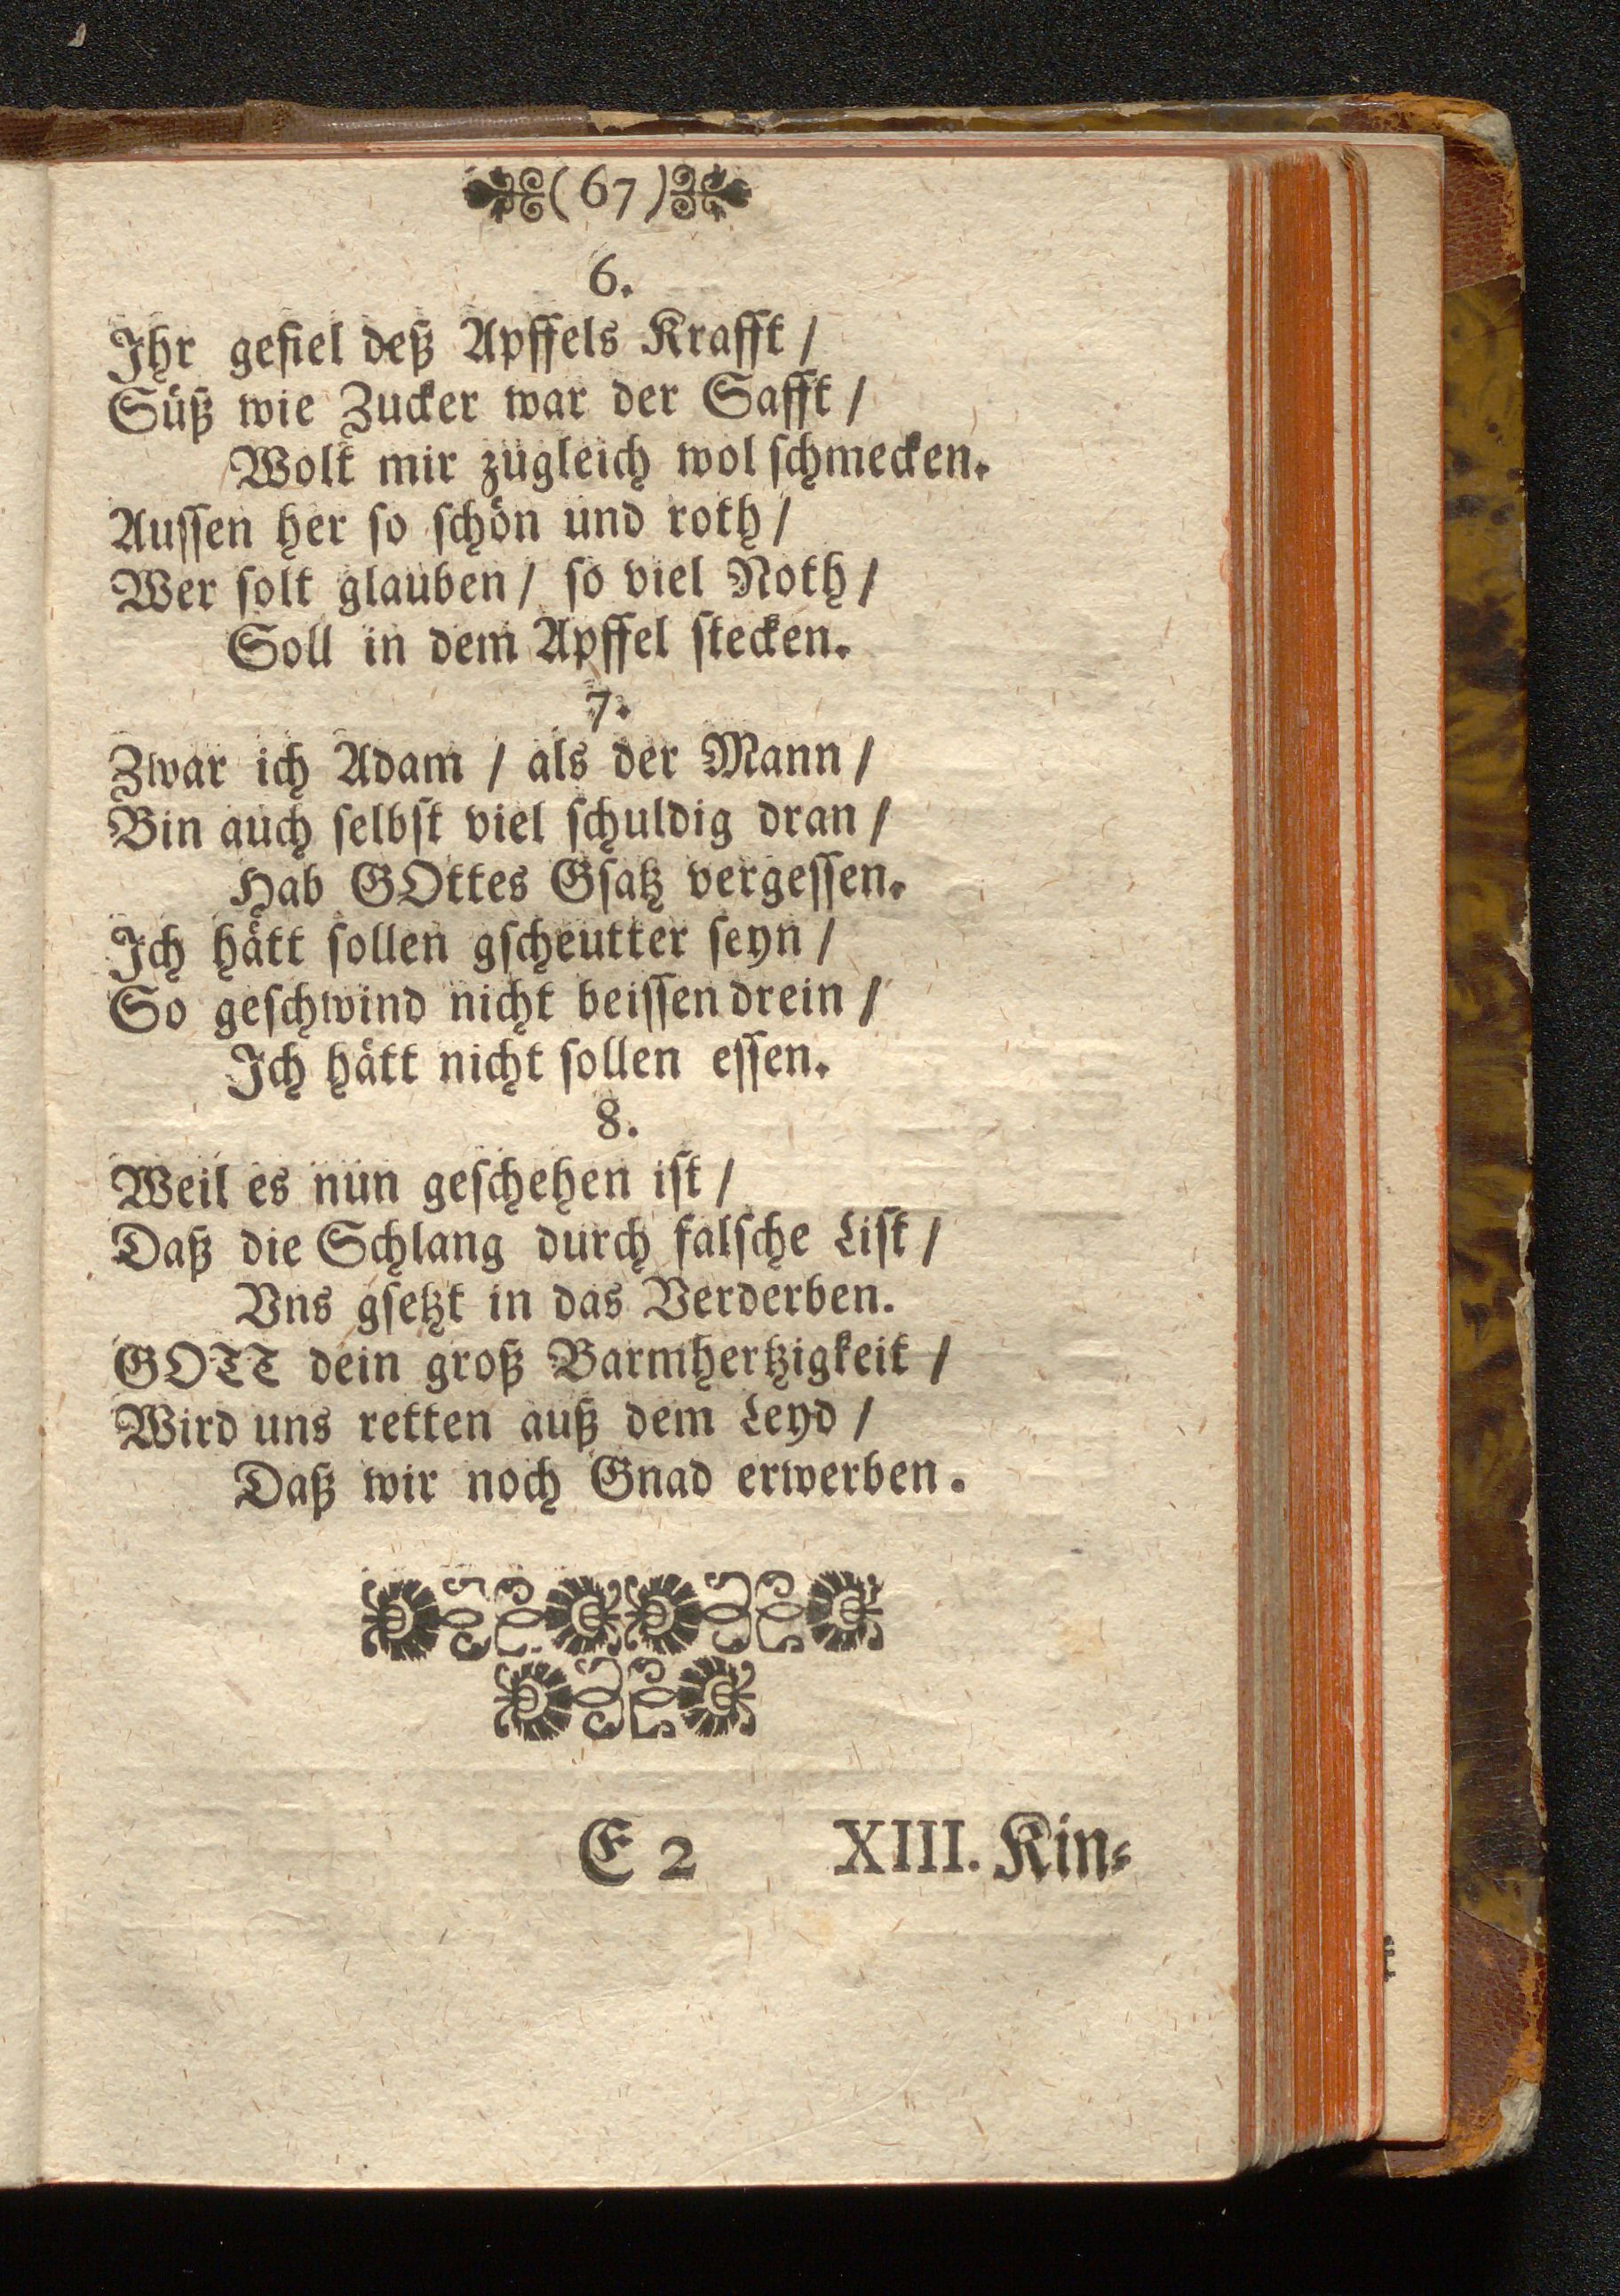 (67)
6.
Ihr gefiel deß Apffels Krafft /
Süß wie Zucker war der Safft /
Wolt mir zugleich wol schmecken.
Aussen her so schön und roth /
Wer solt glauben / so viel Noth /
Soll in dem Apffel stecken.
7.
Zwar ich Adam / als der Mann /
Bin auch selbst viel schuldig dran /
Hab GOttes Gsatz vergessen.
Ich hätt sollen gscheutter seyn /
So geschwind nicht beissen drein /
Ich hätt nicht sollen essen.
8.
Weil es nun geschehen ist /
Daß die Schlang durch falsche List /
Vns gsetzt in das Verderben.
GOTT dein groß Barmhertzigkeit /
Wird uns retten auß dem Leyd /
Daß wir noch Gnad erwerben.
E 2 XIII. Kin-